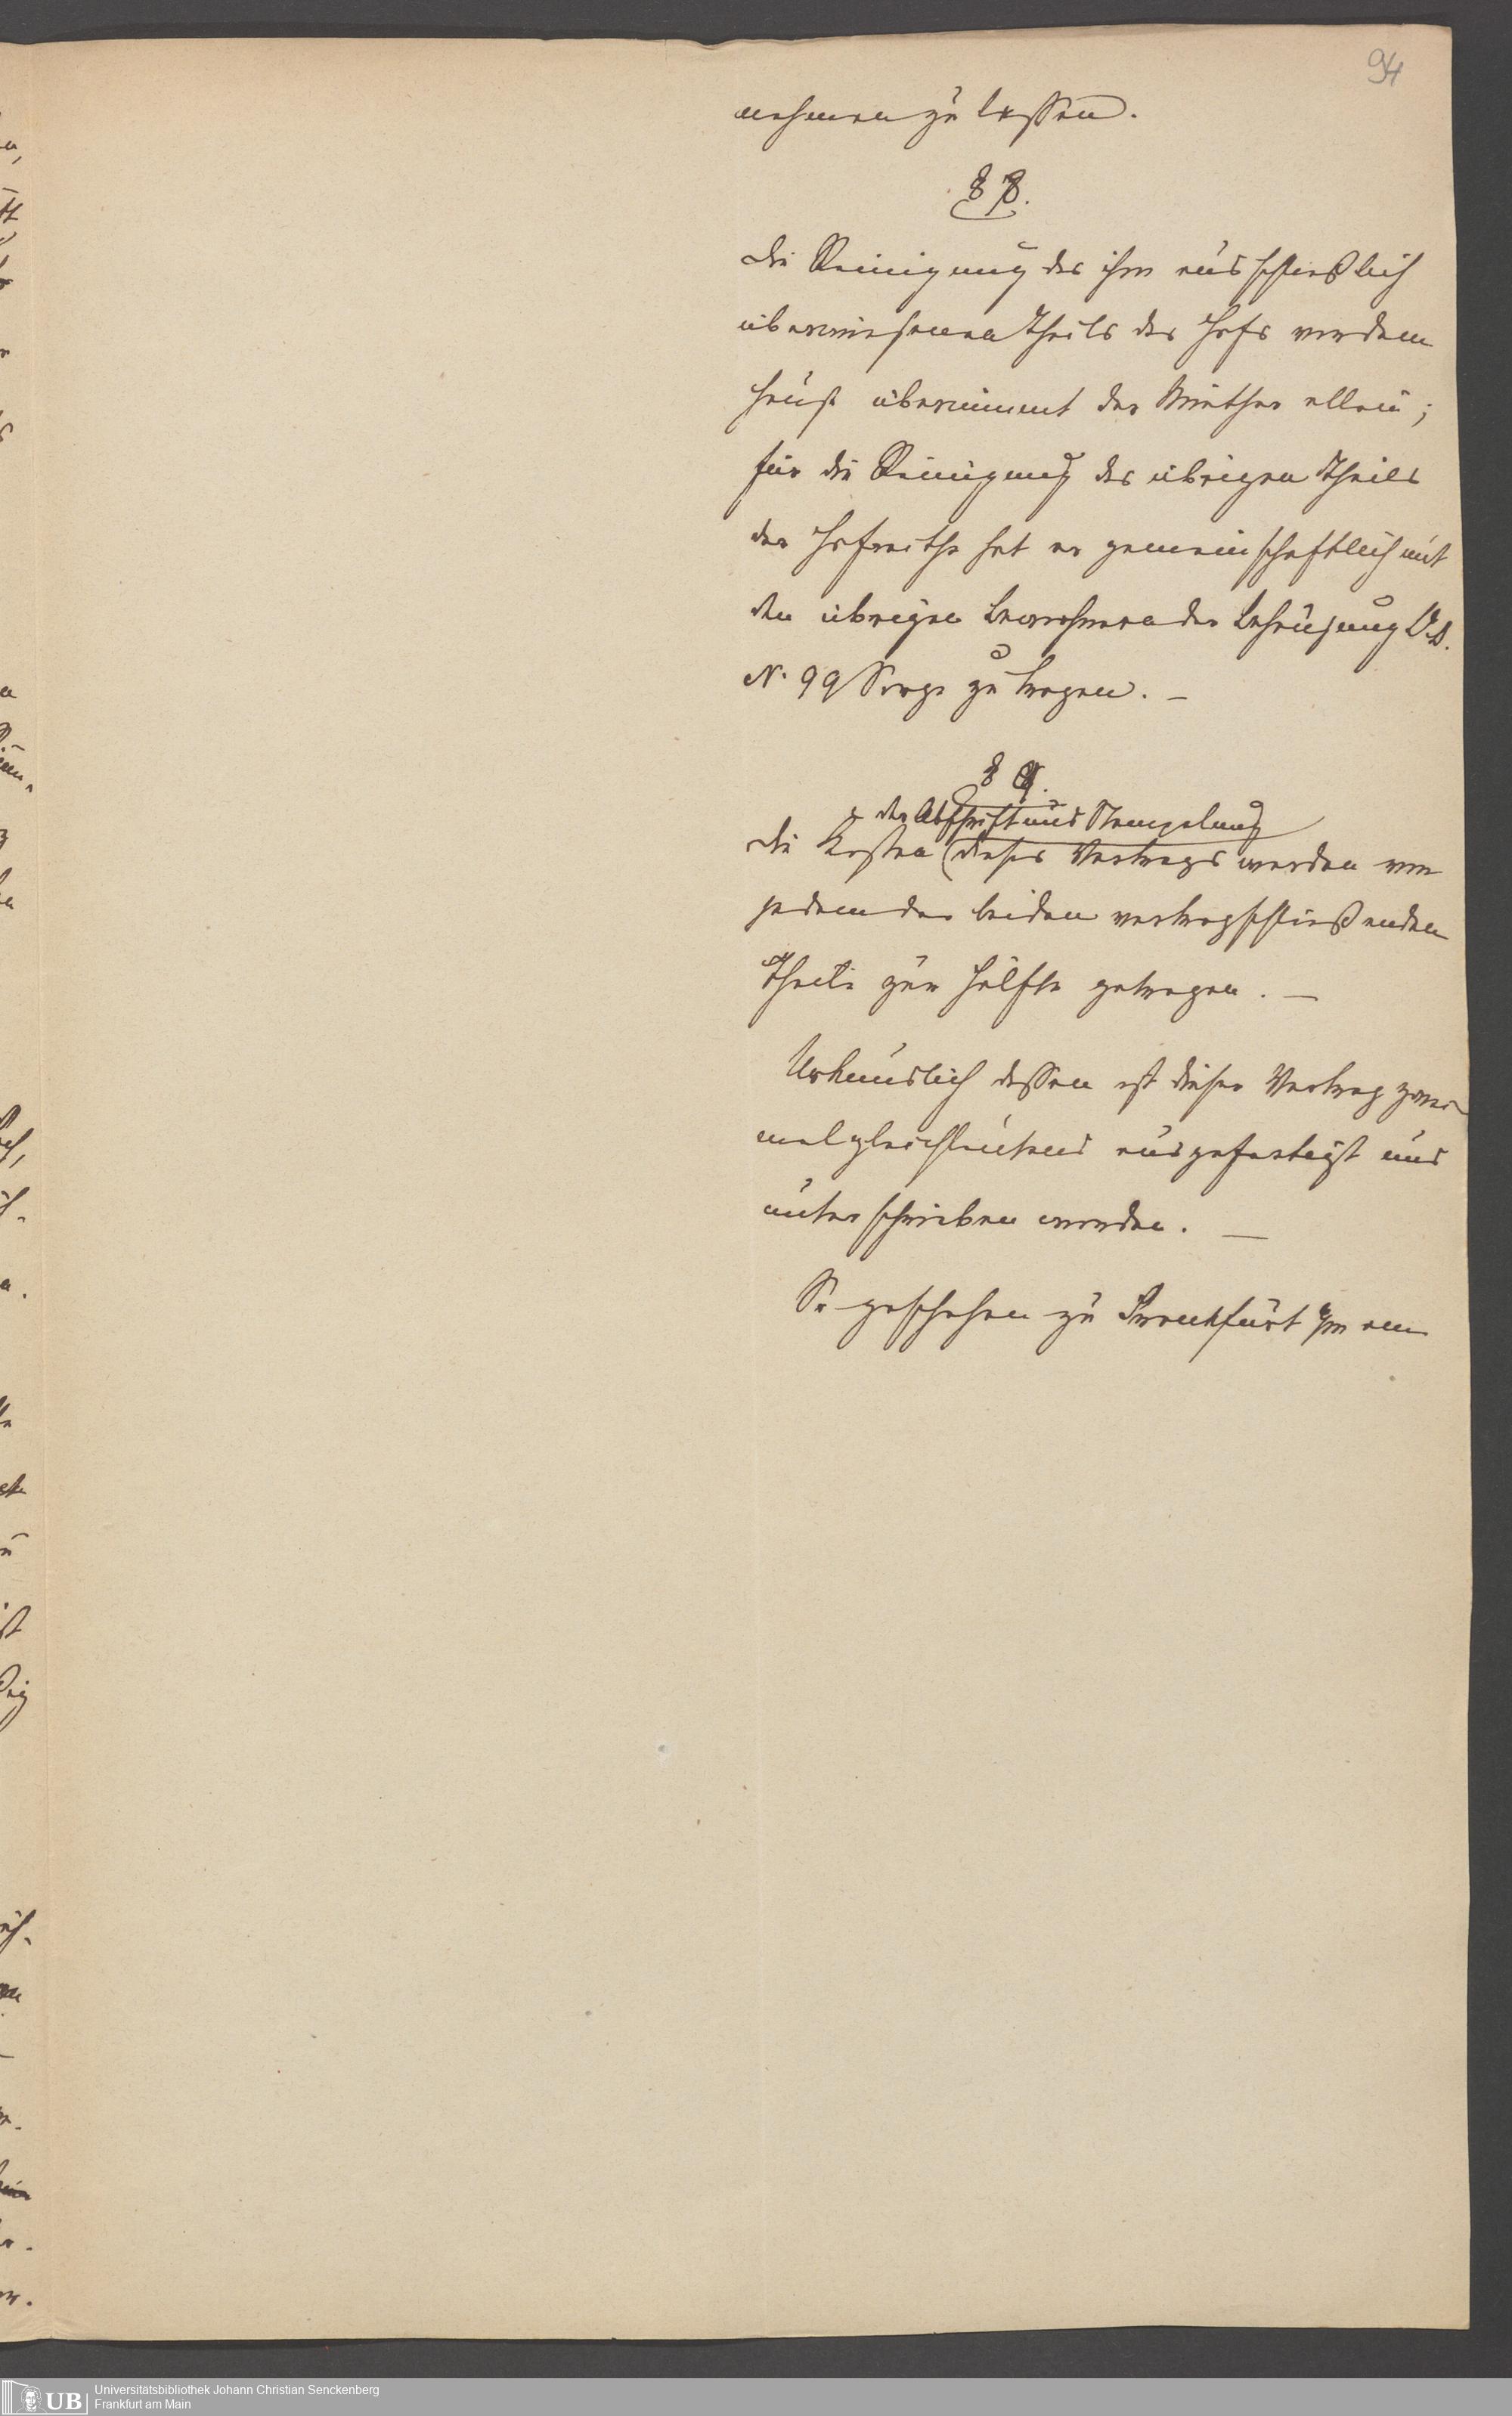 94
nehmen zu lassen.
§ 8.
Die Reinigung des ihm ausschließlich
überwiesenen Theils des Hofs vor dem
Hause übernimmt der Miether allein;
für die Reinigung des übrigen Theils
der Hofraithe hat er gemeinschaftlich mit
den übrigen Bewohnern der Behausung Lit.
N. 99 Sorge zu tragen. –
§ 9.
der Abschrift und Stempelung
Die Kosten (dieses Vertrags werden von
jedem der beiden vertragschließenden
Theile zur Hälfte getragen. –
Urkundlich dessen ist dieser Vertrag zwei
mal gleichlautend ausgefertigt und
unterschrieben worden. –
So geschehen zu Frankfurt a/m am
UB
Universitätsbibliothek Johann Christian Senckenberg
Frankfurt am Main